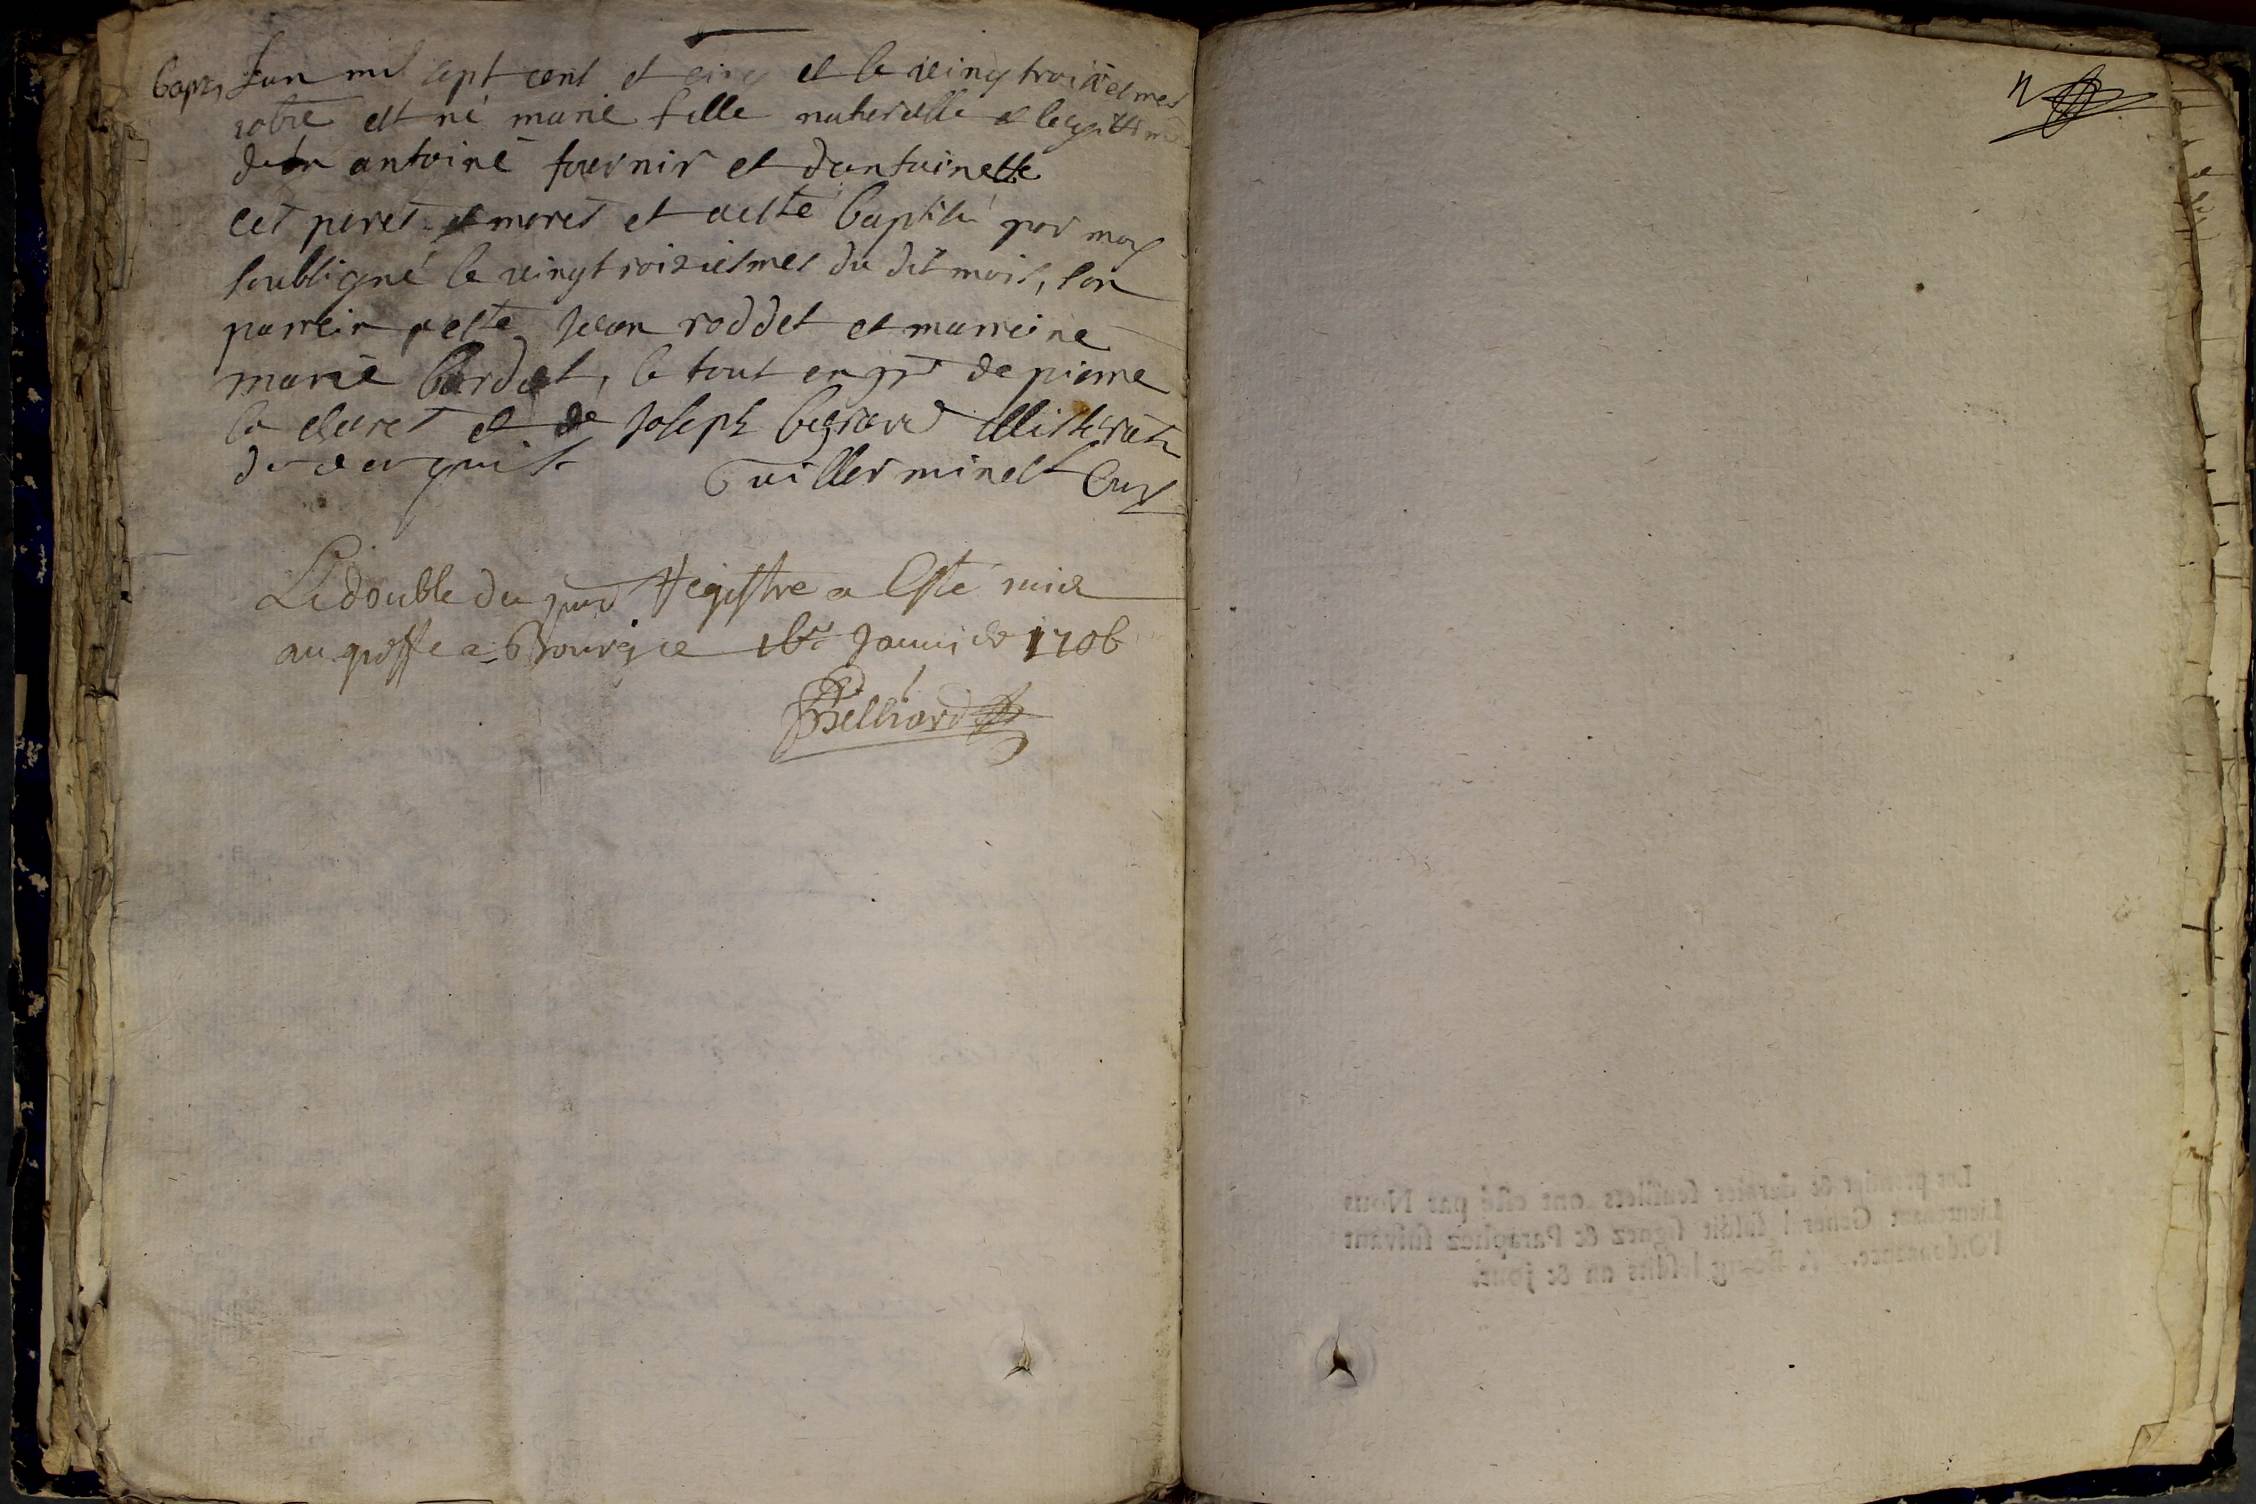 bapt, Lan mil sept cent et cinq et le vingtroixiesmes
est né marie fille naturelle et legitti
antoine fournir et dantoinette
ces peres et meres et aesté baptisé par moy
soubsigné le vingtroiziesmes du dit mois, son
parrein aesté Jean roddet et marreine
marie bardet, le tout en pr de pierre
et de Joseph illitterat
de ce enquis Guillerminet Cur
Le double du pnt Registre a Esté mis
au greffe a Bourg ce 16e Janvier 1706
Belliard
Les premier & dernier feuillets ont esté par Nous
Lieutenant Gener l susdit signez & Paraphez suivant
l'Ordonnance. A Bourg lesdits an & jour.